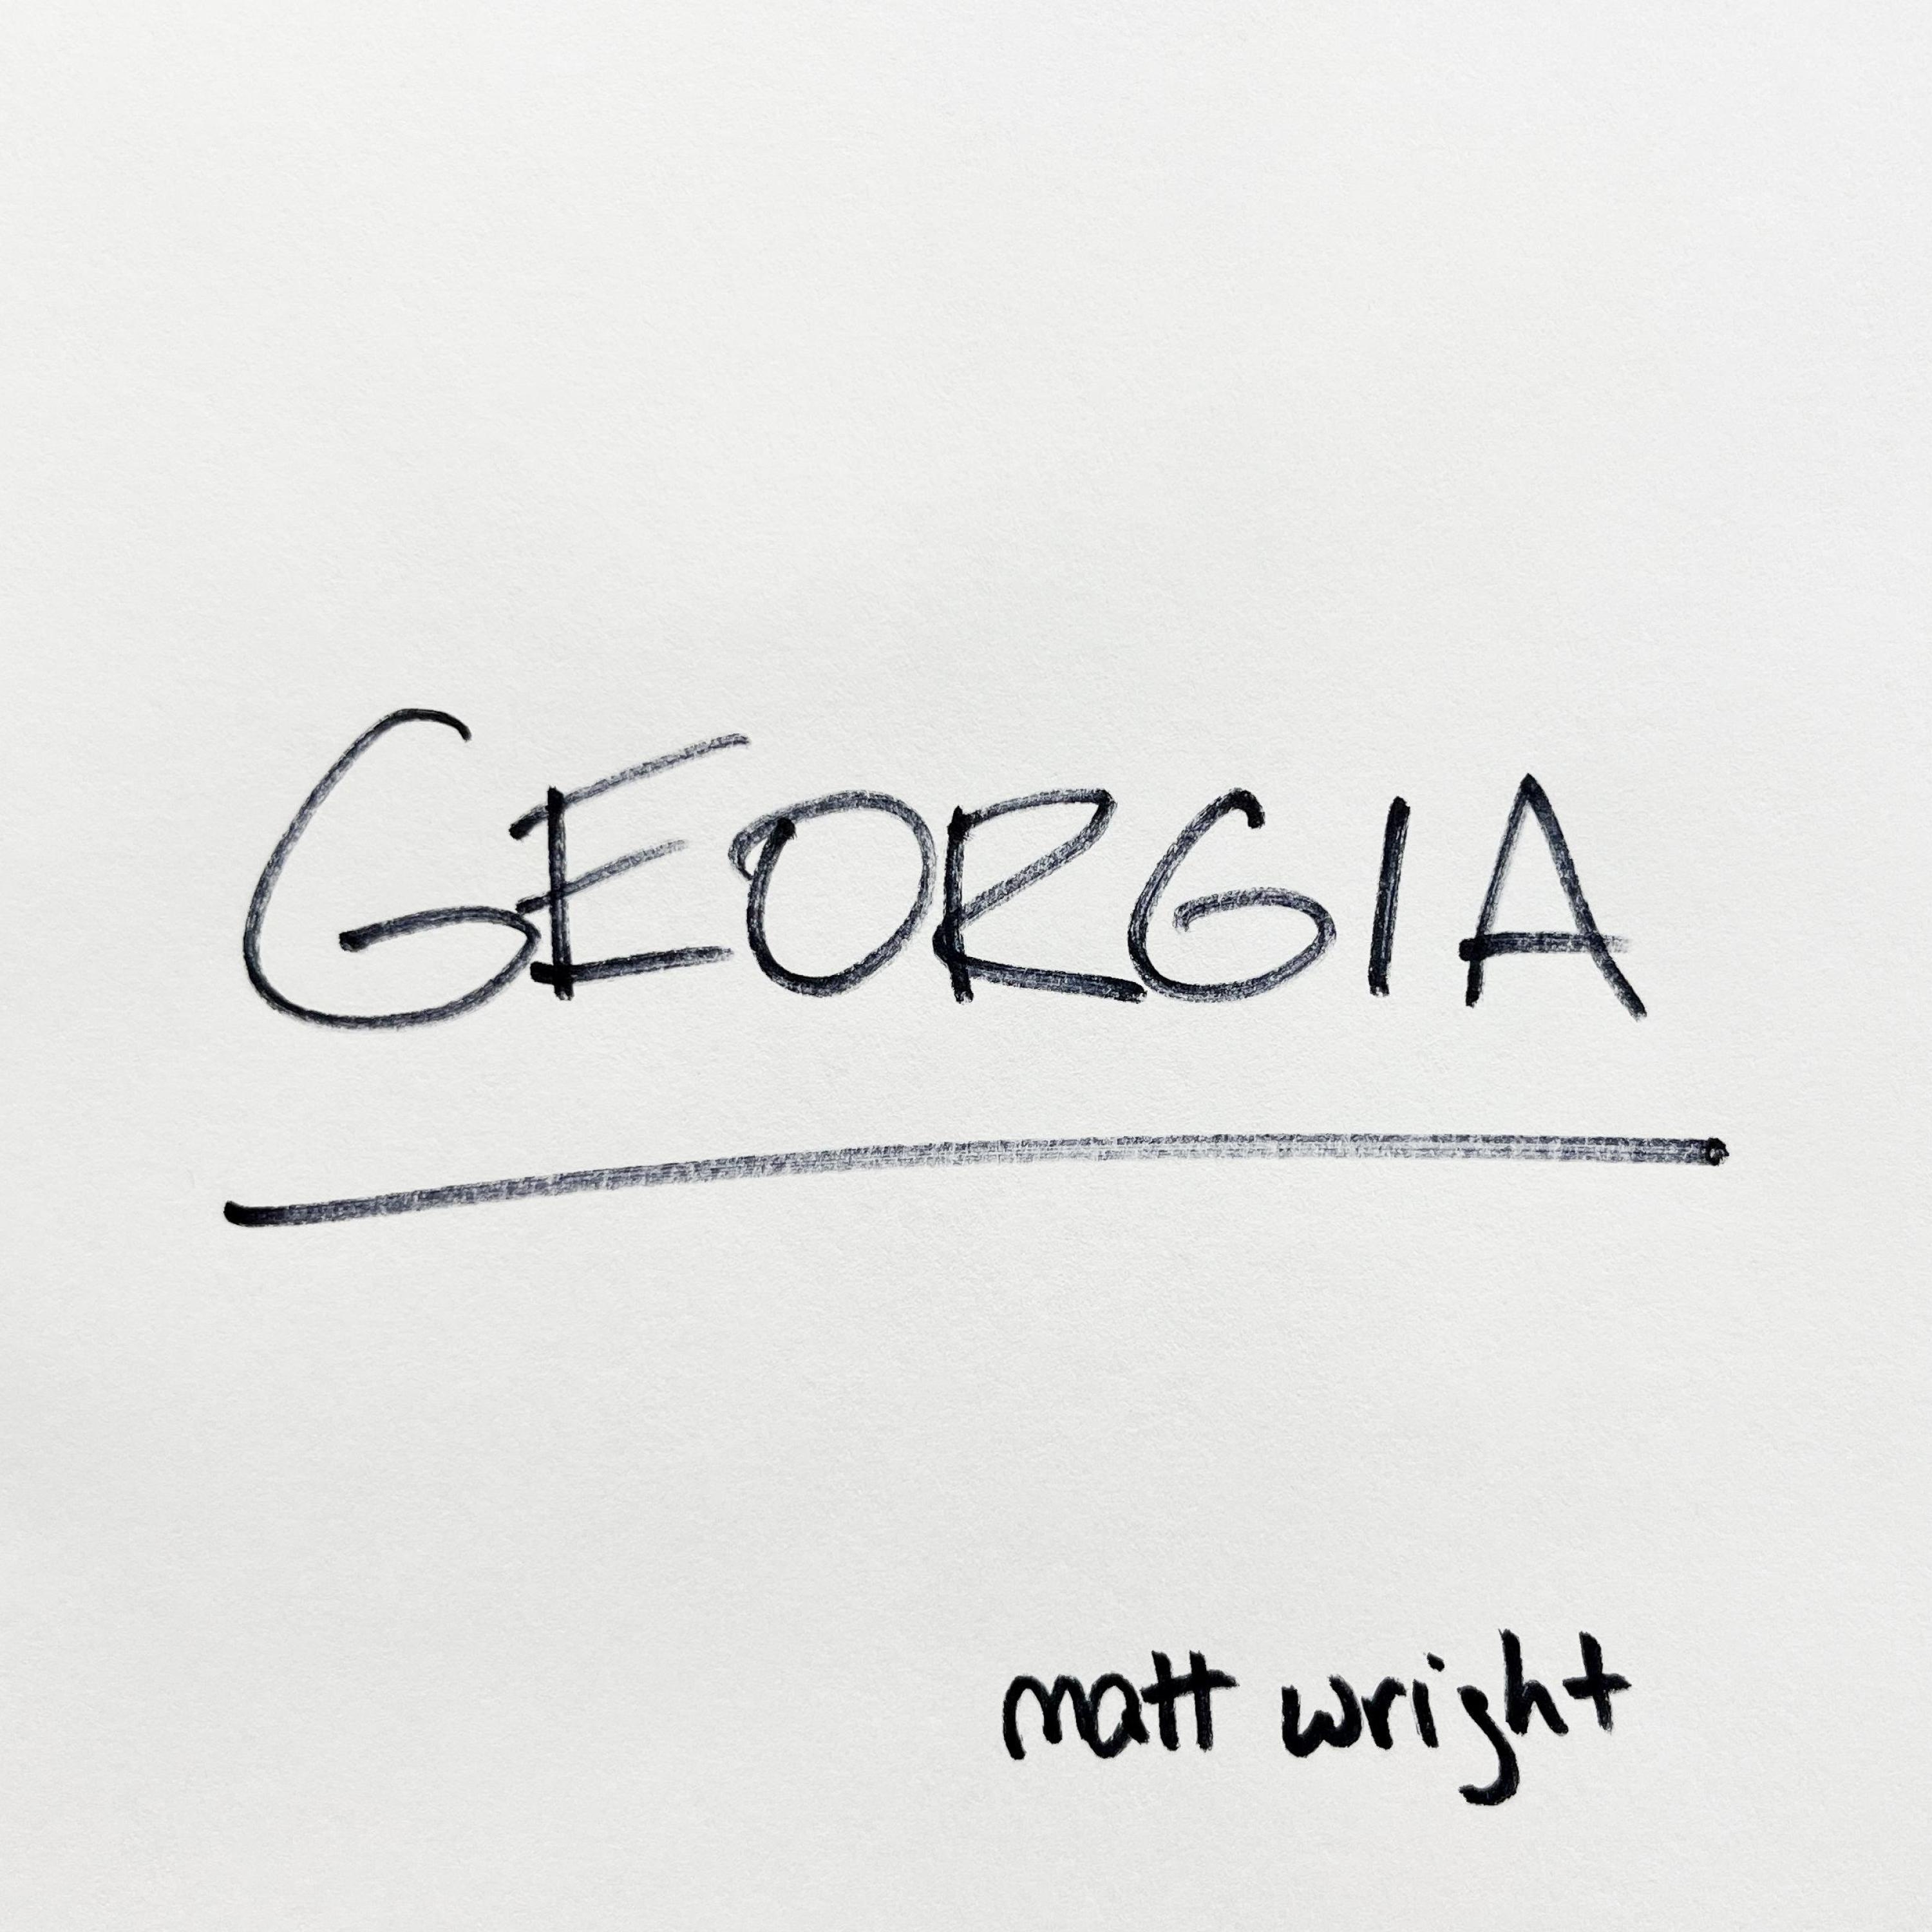 GEORGIA
matt wright